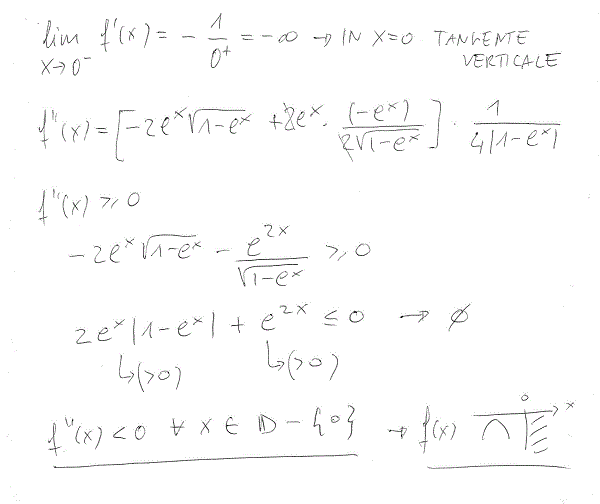 lim f'(x) = - 1/0⁺ = -∞ → IN X=0 TANGENTE VERTICALE
X→0⁻
f''(x) = [-2eˣ√(1-eˣ) + 2eˣ · (-eˣ)/(2√(1-eˣ))] · 1/(4|1-eˣ|)
f''(x) ≥ 0
-2eˣ√(1-eˣ) - e²ˣ/√(1-eˣ) ≥ 0
2eˣ|1-eˣ| + e²ˣ ≤ 0 → ∅
↳(>0) ↳(>0)
f''(x) < 0 ∀ x ∈ D - {0} → f(x) 0 x